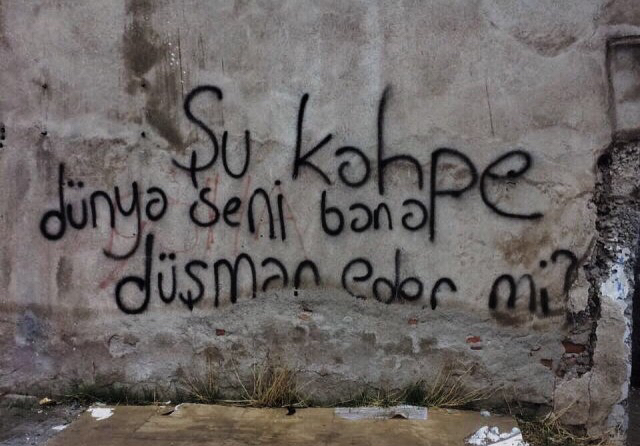 Şu kahpe
dünya seni bana
düşman eder mi?